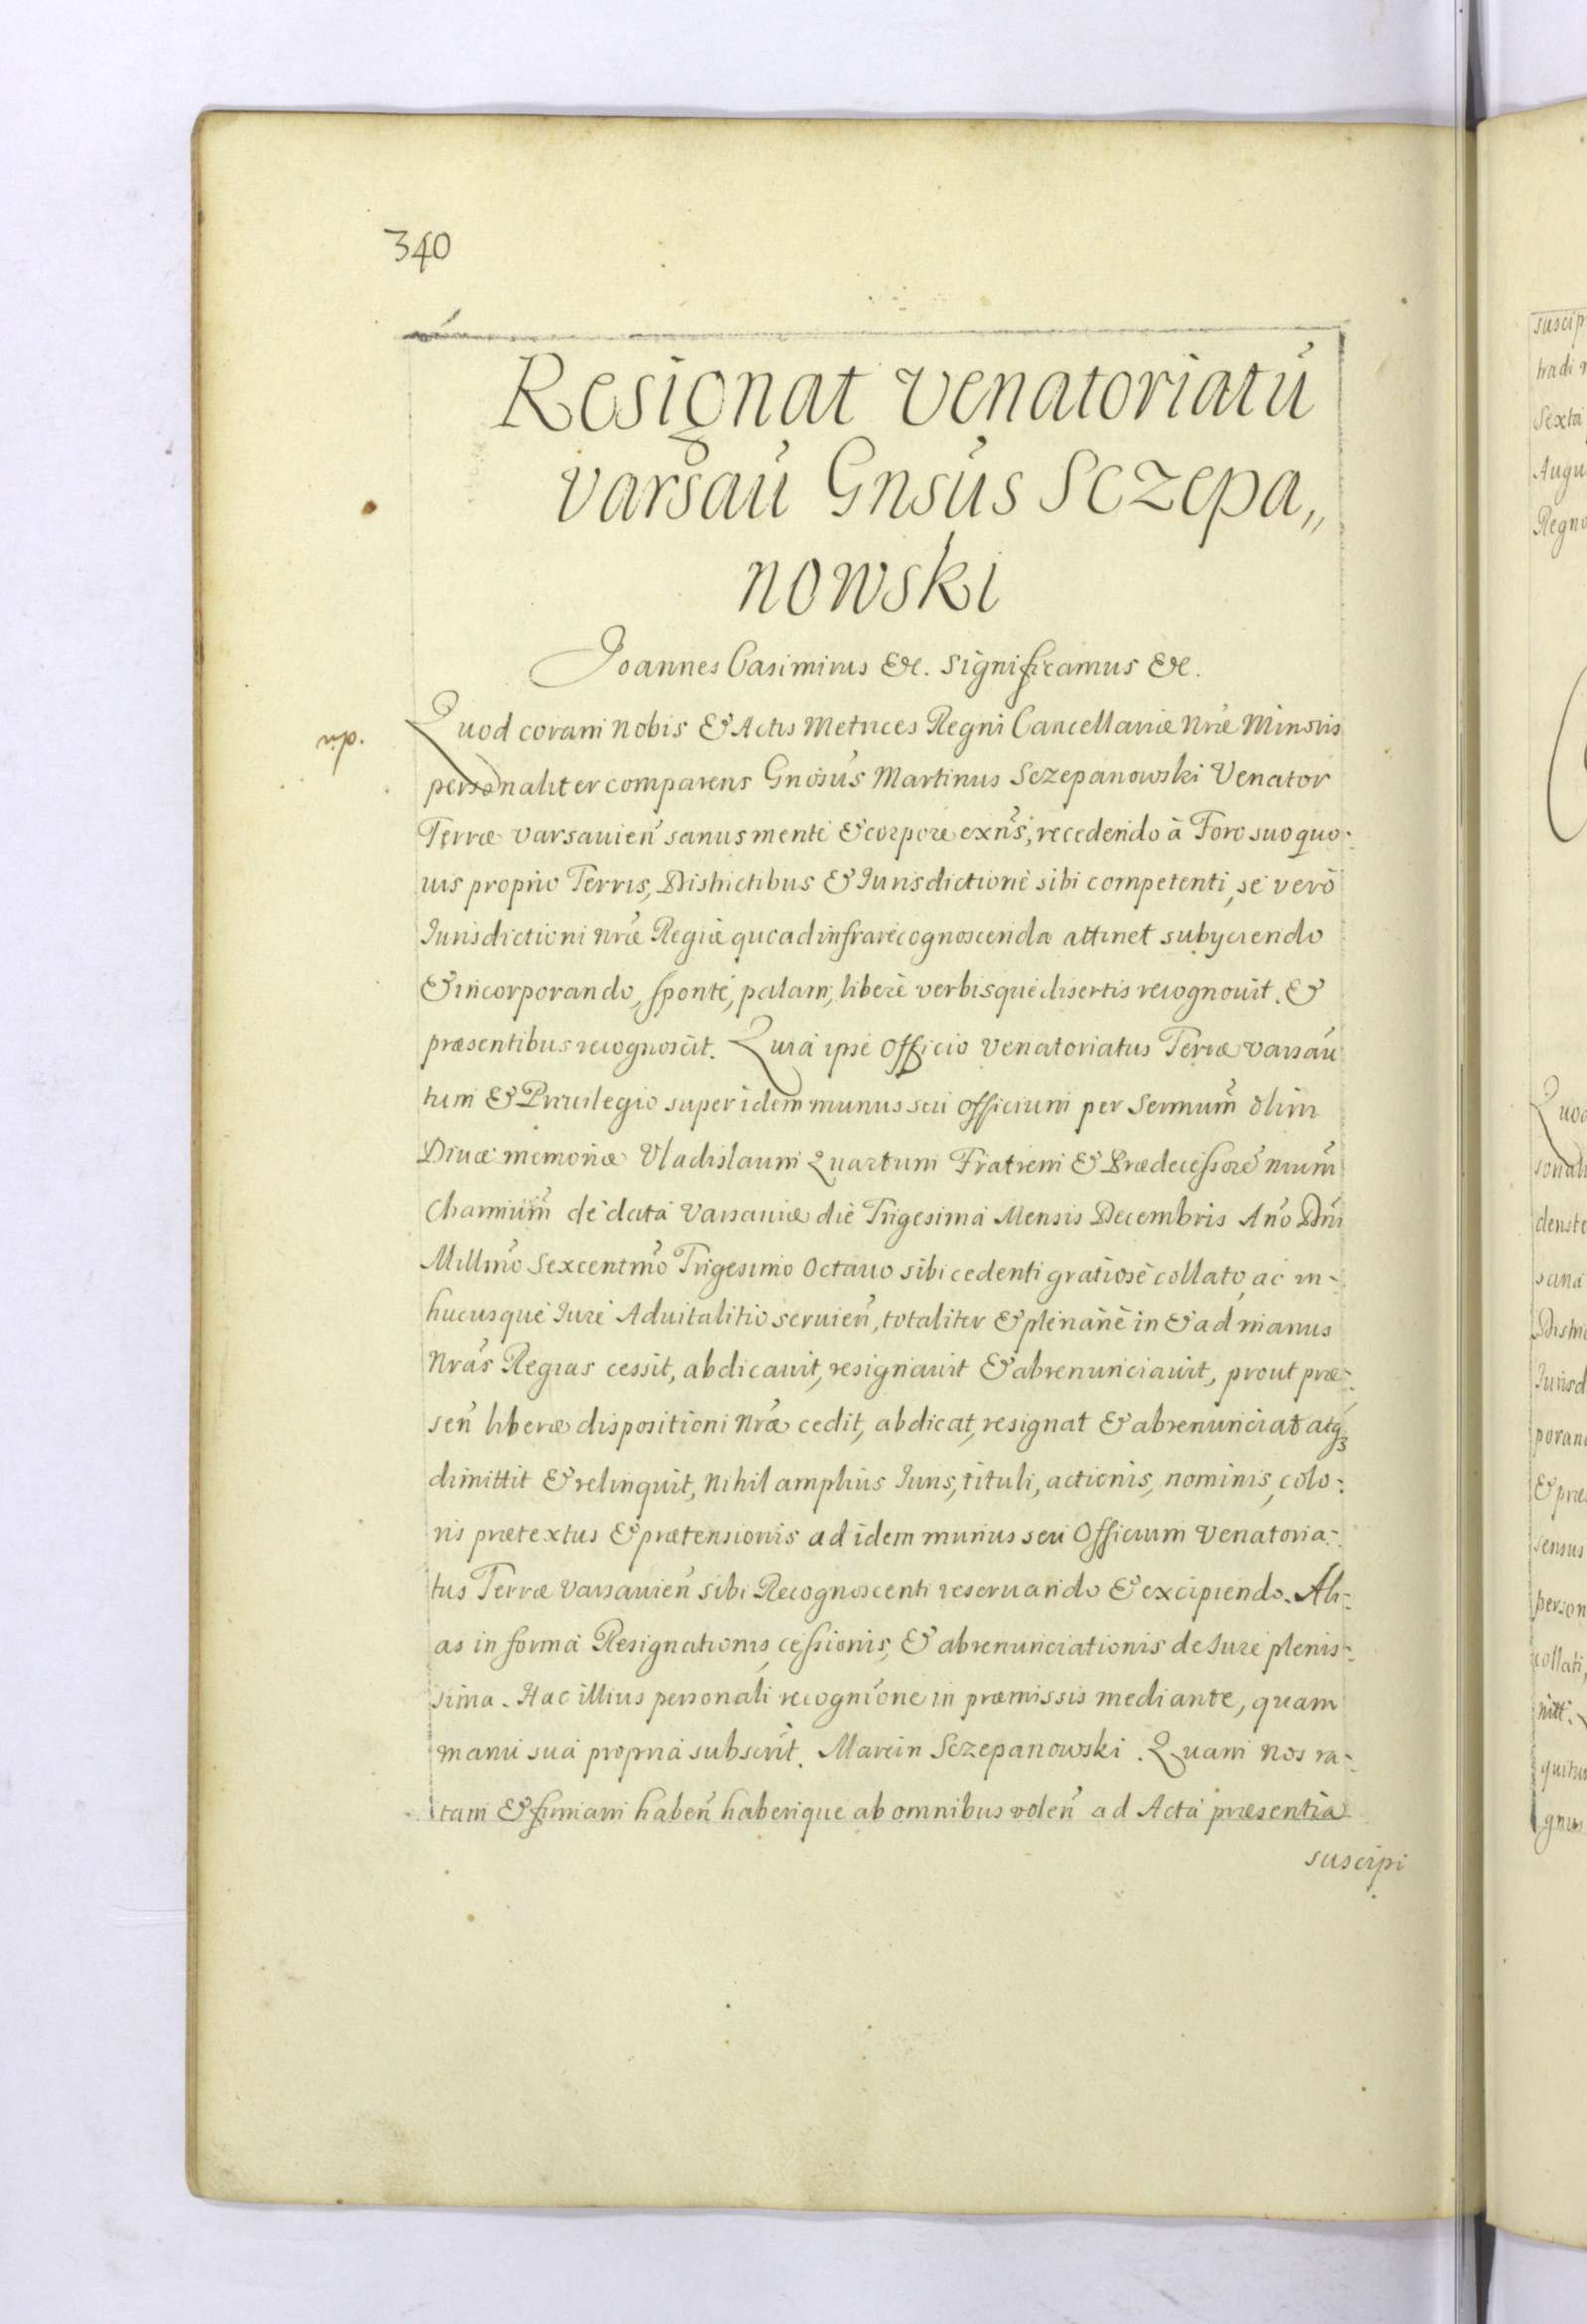 340
Resignat venatoriatu
varsau Gnsus Sczepa„
nowski
Joannes Casimirus &c. significamus &c.
np.
Quod coram nobis & Actis Metrices Regni Cancellariæ nræ Minoris
personaliter comparens Gnosus Martinus Sczepanowski Venator
Terræ varsavien sanus mente & corpore exns, recedendo à Foro suo quo-
uis proprio Terris, Districtibus & Jurisdictione sibi competenti, se verò
Jurisdictioni nræ Regiæ quoad infra recognoscenda attinet subyciendo
& incorporando, sponte, palam, liberè verbisque disertis recognouit. &
præsentibus recognoscit. Quia ipse Officio venatoriatus Terræ varsau
tum & Priuilegio super idem munus seu officium per Sermum olim
Diuæ memoriæ Vladislaum Quartum Fratrem & Prædecessorē nrum
Charmum de data Varsauiæ die Trigesima Mensis Decembris Ano Dni
Millmo Sexcentmo Trigesimo Octauo sibi cedenti gratiosè collato, ac in-
hucusque Jure Aduitalitio seruien, totaliter & plenariè in & ad manus
Nras Regias cessit, abdicauit, resignauit & abrenunciauit, prout præ-
sen liberæ dispositioni nræ cedit, abdicat, resignat & abrenunciat atq3
dimittit & relinquit, Nihil amplius Juris, tituli, actionis, nominis, colo-
ris prætextus & prætensionis ad idem munus seu Officium Venatoria-
tus Terræ Varsauien sibi Recognoscenti reseruando & excipiendo. Ali-
as in forma Resignationis, cessionis, & abrenunciationis de Jure plenis-
sima. Hac illius personali recognione in præmissis mediante, quam
manu sua propria subscrit. Marcin Sczepanowski. Quam nos ra-
tam & firmam haben haberique ab omnibus volen ad Acta præsentia
suscipi